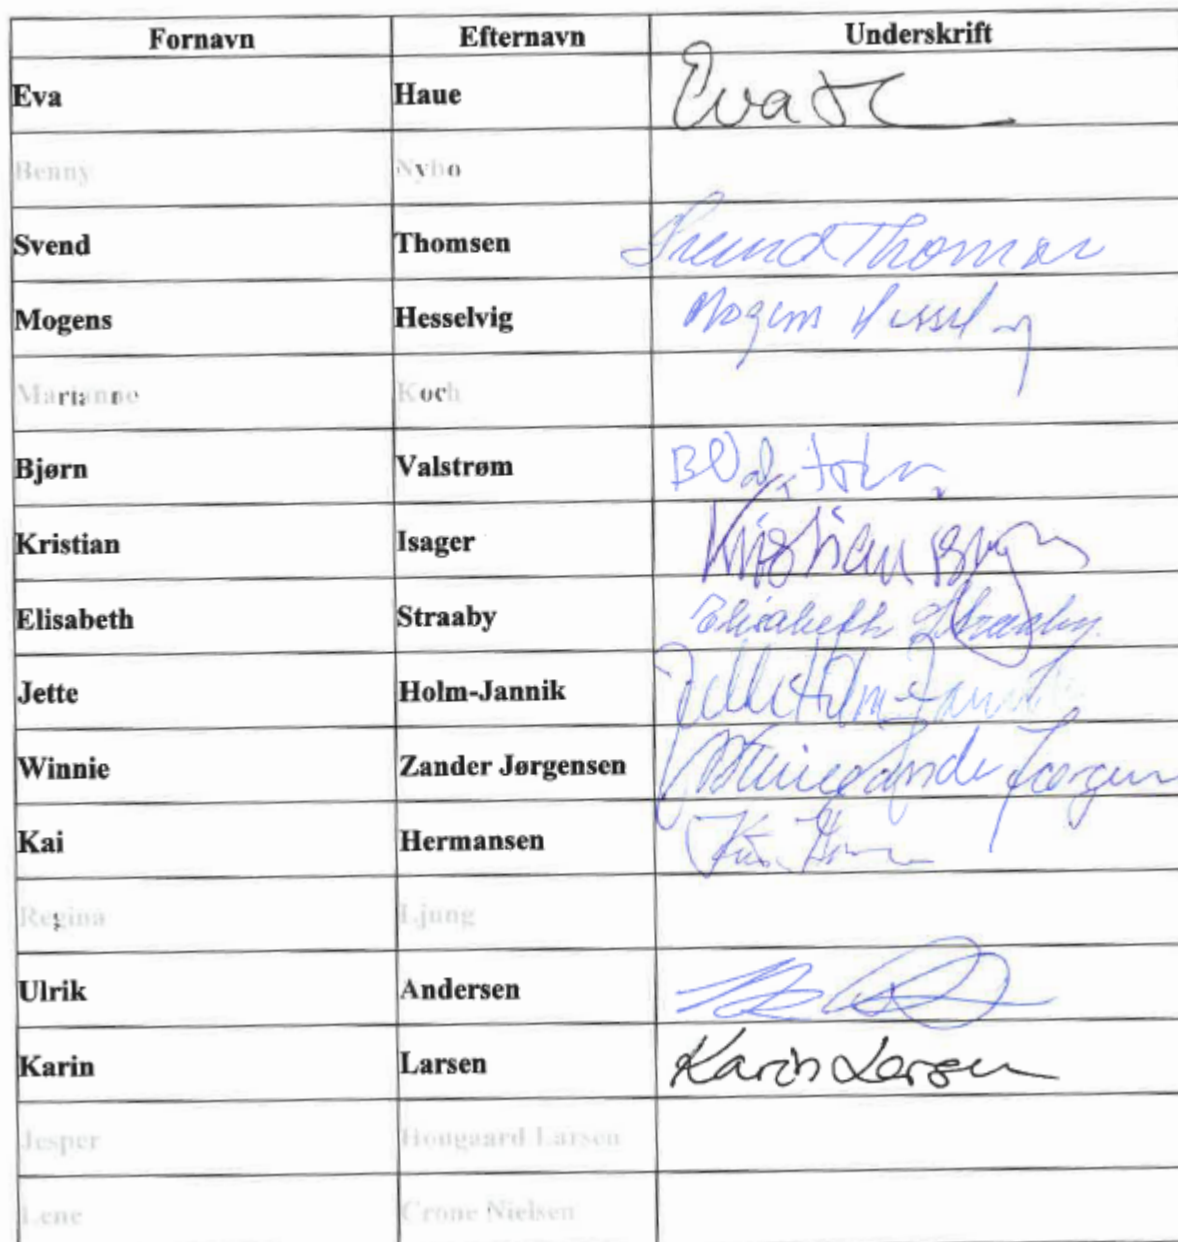 Fornavn Efternavn Underskrift
Eva Haue Eva H
Benny Nybo
Svend Thomsen Svend Thomsen
Mogens Hesselvig Mogens Hesselvig
Marianne Koch
Bjørn Valstrøm B Valstrøm
Kristian Isager Kristian
Elisabeth Straaby Elisabeth Straaby
Jette Holm-Jannik Jette Holm-Jannik
Winnie Zander Jørgensen Winnie Zander Jørgensen
Kai Hermansen Kai
Regina Ljung
Ulrik Andersen
Karin Larsen Karin Larsen
Jesper Hougaard Larsen
Lene Crone Nielsen